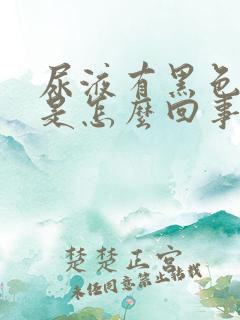 尿液有黑色
是怎麼回事
楚楚正宮
未经同意禁止转载